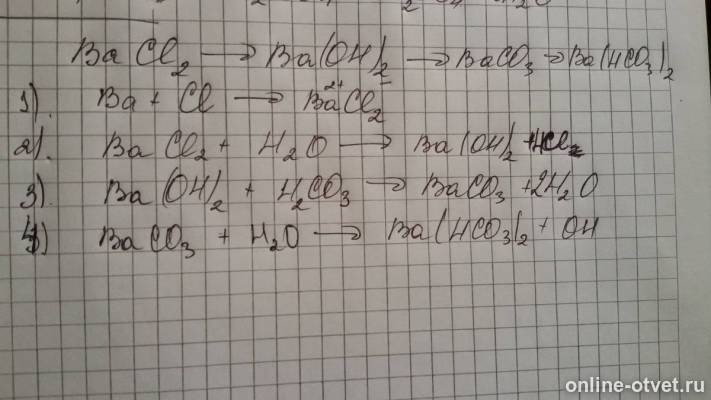 BaCl₂ → Ba(OH)₂ → BaCO₃ → Ba(HCO₃)₂
1). Ba + Cl → Ba²⁺Cl₂⁻
2). BaCl₂ + H₂O → Ba(OH)₂ + HCl₂
3) Ba(OH)₂ + H₂CO₃ → BaCO₃ + 2H₂O
4) BaCO₃ + H₂O → Ba(HCO₃)₂ + OH
online-otvet.ru